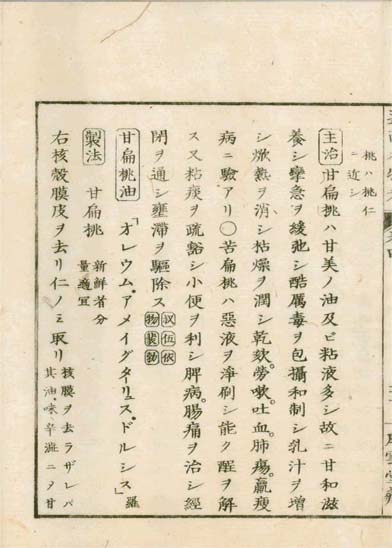 桃ハ桃仁
ニ近シ
主治 甘扁桃ハ甘美ノ油及ヒ粘液多シ故ニ甘和滋
養シ攣急ヲ緩弛シ酷厲毒ヲ包攝和制シ乳汁ヲ増
シ焮熱ヲ消シ枯燥ヲ潤シ乾欬。勞嗽。吐血。肺瘍。羸瘦
病ニ驗アリ〇苦扁桃ハ惡液ヲ淨刷シ能ク酲ヲ解
ス又粘痰ヲ疏豁シ小便ヲ利シ脾病。腸痛ヲ治シ經
閉ヲ通シ壅滯ヲ驅除ス
甘扁桃油 「オレウム。アメイグダリュス。ドルシス」羅
製法 甘扁桃 新鮮者分
量適宜
右核殼膜皮ヲ去リ仁ノミ取リ 核膜ヲ去ラザレバ
其油。味辛澁ニノ甘